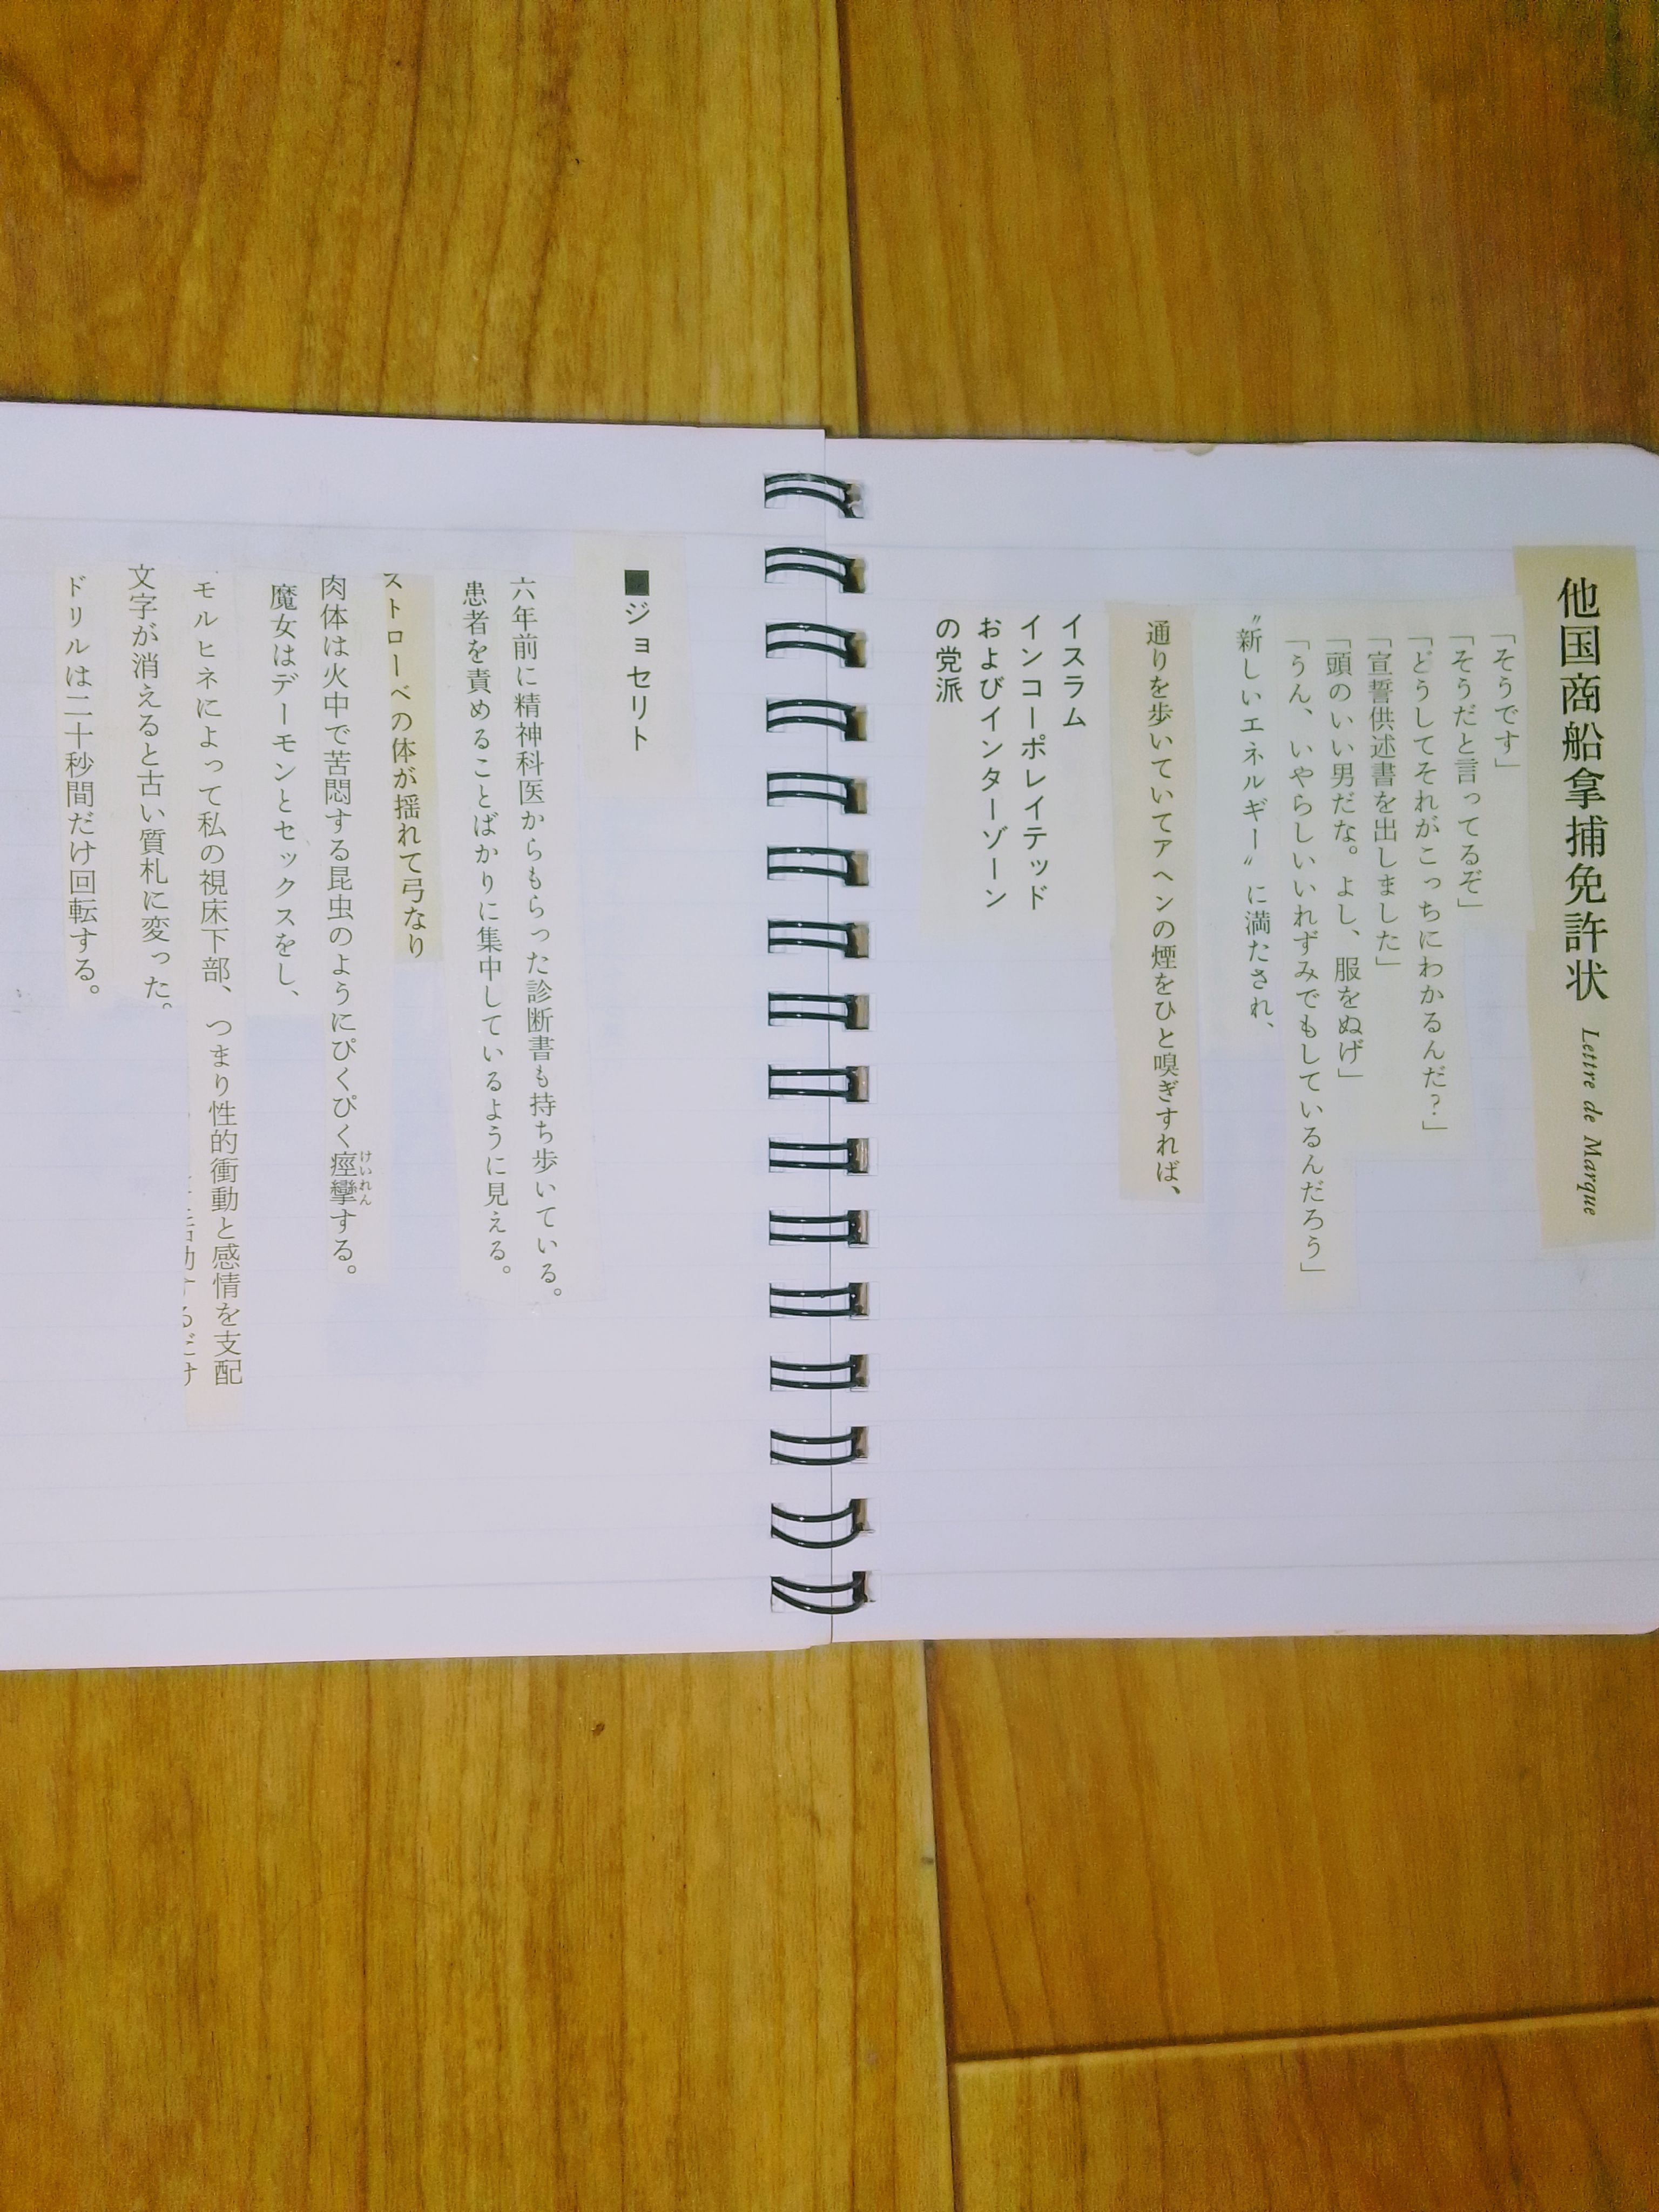 他国商船拿捕免許状 Lettre de Marque
「そうです」
「そうだと言ってるぞ」
「どうしてそれがこっちにわかるんだ？」
「宣誓供述書を出しました」
「頭のいい男だな。よし、服をぬげ」
「うん、いやらしいいれずみでもしているんだろう」
〝新しいエネルギー〟に満たされ、
通りを歩いていてアヘンの煙をひと嗅ぎすれば、
イスラム
インコーポレイテッド
およびインターゾーン
の党派
■ジョセリト
六年前に精神科医からもらった診断書も持ち歩いている。
患者を責めることばかりに集中しているように見える。
ストローベの体が揺れて弓なり
肉体は火中で苦悶する昆虫のようにぴくぴく痙攣する。
けいれん
魔女はデーモンとセックスをし、
モルヒネによって私の視床下部、つまり性的衝動と感情を支配
文字が消えると古い質札に変った。
ドリルは二十秒間だけ回転する。